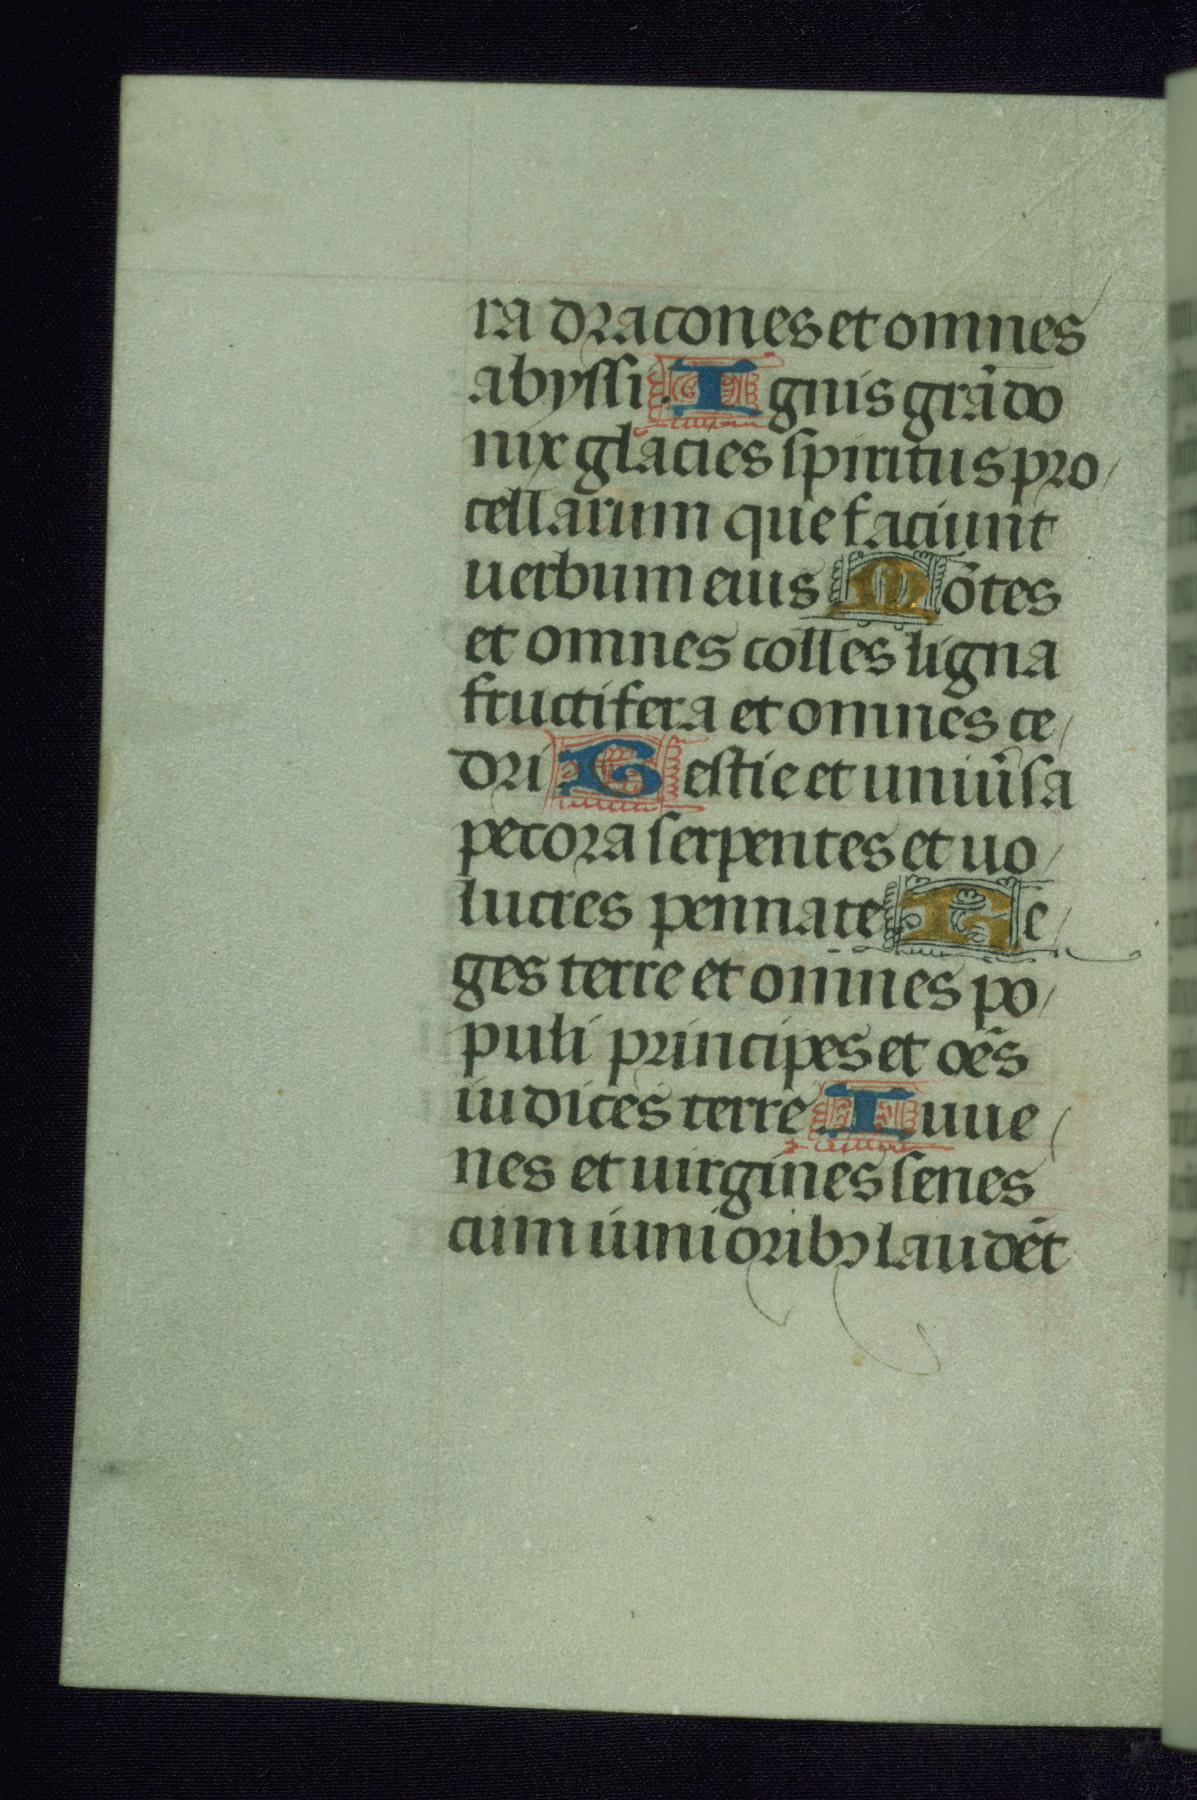 ra dracones et omnes
abyssi. Ignis grãdo
nix glacies spiritus pro/
cellarum que faciunt
uerbum eius Mõtes
et omnes colles ligna
fructifera et omnes ce/
dri Gestie et uniũsa
pecora serpentes et uo/
lucres pennate Re/
ges terre et omnes po/
puli principes et oẽs
iudices terre Iuue/
nes et uirgines senes
cum iunioribꝫ laudẽt